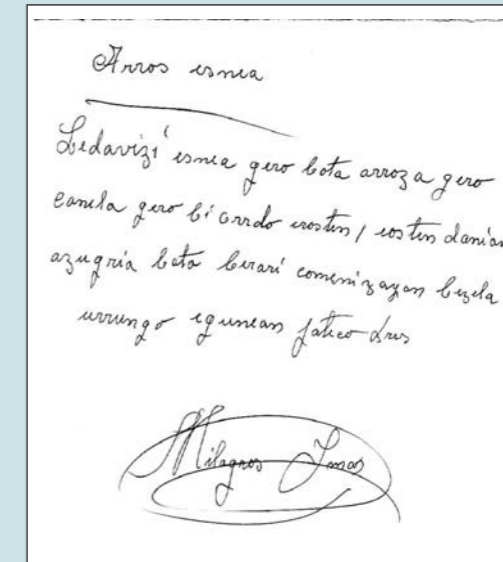 Arros esnea
Ledavizi esnea gero bota arroza gero
canela gero bi orrdo erosten, eosten danian
azugria bota berari comenizayan bezela
urrungo egunean jateco drus
Milagros Imas